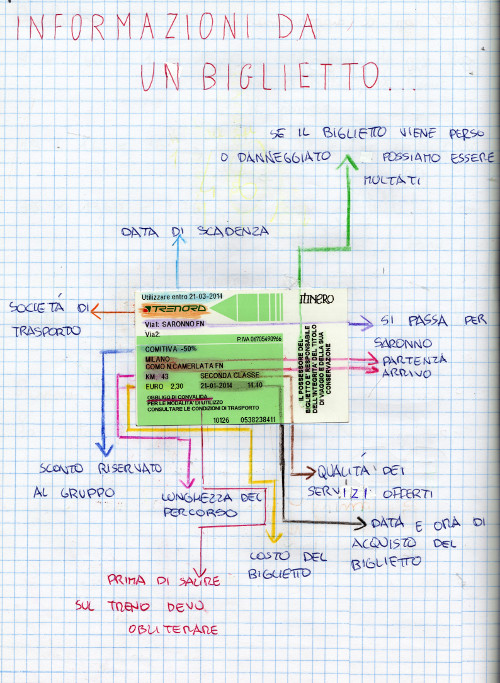 INFORMAZIONI DA
UN BIGLIETTO...
SE IL BIGLIETTO VIENE PERSO
O DANNEGGIATO POSSIAMO ESSERE
MULTATI
DATA DI SCADENZA
SOCIETÁ DI
TRASPORTO
Utilizzare entro 21-03-2014
TRENORD
Via1: SARONNO FN
Via2:
P.IVA 06705490966
COMITIVA -50%
MILANO
COMO N.CAMERLATA FN
KM. 43 SECONDA CLASSE
EURO 2,30 21-01-2014 14.40
OBBLIGO DI CONVALIDA
PER LE MODALITA' DI UTILIZZO
CONSULTARE LE CONDIZIONI DI TRASPORTO
10126 0538238411
ITINERO
IL POSSESSORE DEL
BIGLIETTO E' RESPONSABILE
DELL'INTEGRITA' DEL TITOLO
DI VIAGGIO E DELLA SUA
CONSERVAZIONE
SI PASSA PER
SARONNO
PARTENZA
ARRIVO
SCONTO RISERVATO
AL GRUPPO
LUNGHEZZA DEL
PERCORSO
QUALITÁ DEI
SERVIZI OFFERTI
DATA E ORA DI
ACQUISTO DEL
BIGLIETTO
COSTO DEL
BIGLIETTO
PRIMA DI SALIRE
SUL TRENO DEVO
OBLITERARE